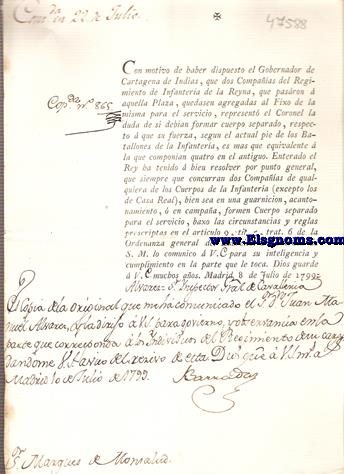 Con^da en 22 de Julio.
✠
47588
Cop^da n.º 865
Con motivo de haber dispuesto el Gobernador de
Cartagena de Indias, que dos Compañias del Regi-
miento de Infanteria de la Reyna, que pasáron á
aquella Plaza, quedasen agregadas al Fixo de la
misma para el servicio, representó el Coronel la
duda de si debian formar cuerpo separado, respec-
to á que su fuerza, segun el actual pie de los Ba-
tallones de la Infanteria, es mas que equivalente á
la que componian quatro en el antiguo. Enterado el
Rey ha tenido á bien resolver por punto general,
que siempre que concurran dos Compañias de qual-
quiera de los Cuerpos de la Infanteria (excepto los
de Casa Real), bien sea en una guarnicion, acanto-
namiento, ó en campaña, formen Cuerpo separado
para el servicio, baxo las circunstancias y reglas
prescriptas en el articulo 9, tit. 6, trat. 6 de la
Ordenanza general de
www.Elsgnoms.com
S. M. lo comunico á V. E para su inteligencia y
cumplimiento en la parte que le toca. Dios guarde
á V. E muchos años. Madrid 8 de Julio de 1799.
Alvarez. S.r Inspector Gral de Cavalleria
Es copia de la original que me ha comunicado el S.r D.n Juan Ma-
nuel Alvarez, y la dirijo á V.S. para govierno, y observancia en la
parte que corresponda á los Individuos del Regimiento de su cargo
dandome V.S. aviso del recivo de esta Dios gue á V.S. m.s a.s
Madrid 10 de Julio de 1799.
S.r Marques de Monsalud.